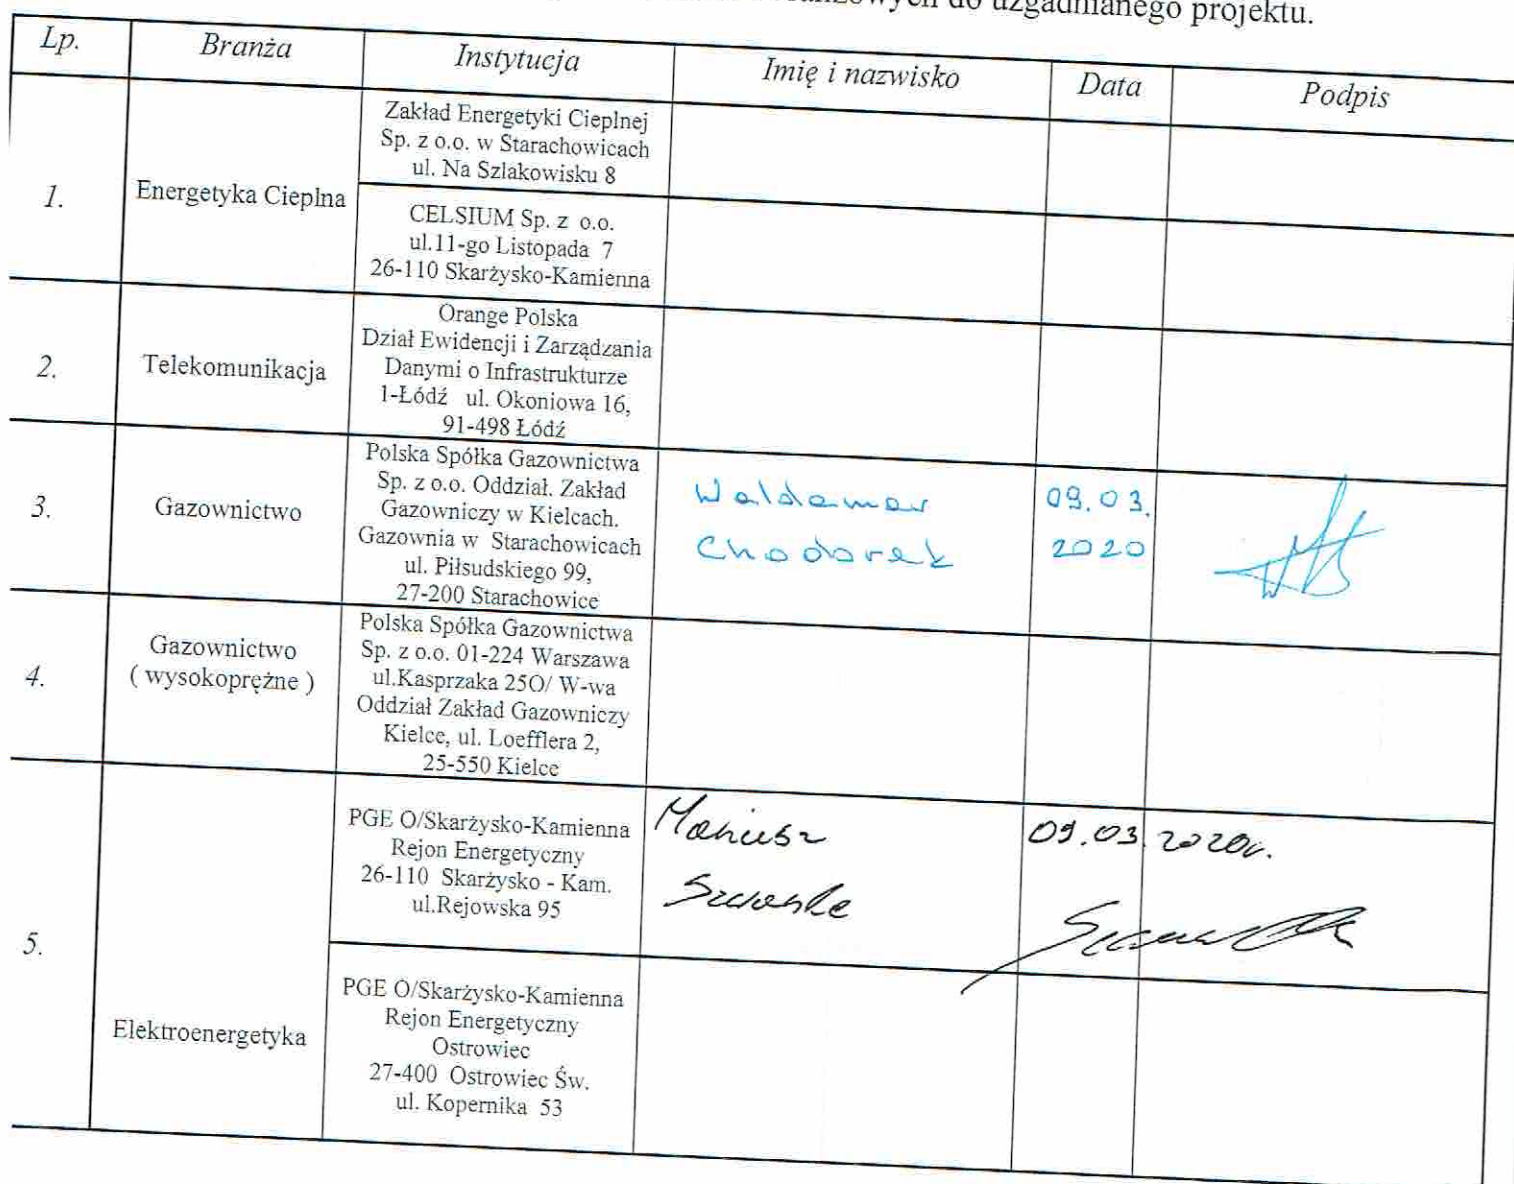 do uzgadnianego projektu.
Lp. Branża Instytucja Imię i nazwisko Data Podpis
1.
Energetyka Cieplna
Zakład Energetyki Cieplnej
Sp. z o.o. w Starachowicach
ul. Na Szlakowisku 8
CELSIUM Sp. z o.o.
ul.11-go Listopada 7
26-110 Skarżysko-Kamienna
2.
Telekomunikacja
Orange Polska
Dział Ewidencji i Zarządzania
Danymi o Infrastrukturze
1-Łódź ul. Okoniowa 16,
91-498 Łódź
3.
Gazownictwo
Polska Spółka Gazownictwa
Sp. z o.o. Oddział. Zakład
Gazowniczy w Kielcach.
Gazownia w Starachowicach
ul. Piłsudskiego 99,
27-200 Starachowice
Waldemar
Chodorek
09.03.
2020
4.
Gazownictwo
( wysokoprężne )
Polska Spółka Gazownictwa
Sp. z o.o. 01-224 Warszawa
ul.Kasprzaka 25O/ W-wa
Oddział Zakład Gazowniczy
Kielce, ul. Loefflera 2,
25-550 Kielce
5.
Elektroenergetyka
PGE O/Skarżysko-Kamienna
Rejon Energetyczny
26-110 Skarżysko - Kam.
ul.Rejowska 95
Mariusz
09.03.2020r.
PGE O/Skarżysko-Kamienna
Rejon Energetyczny
Ostrowiec
27-400 Ostrowiec Św.
ul. Kopernika 53